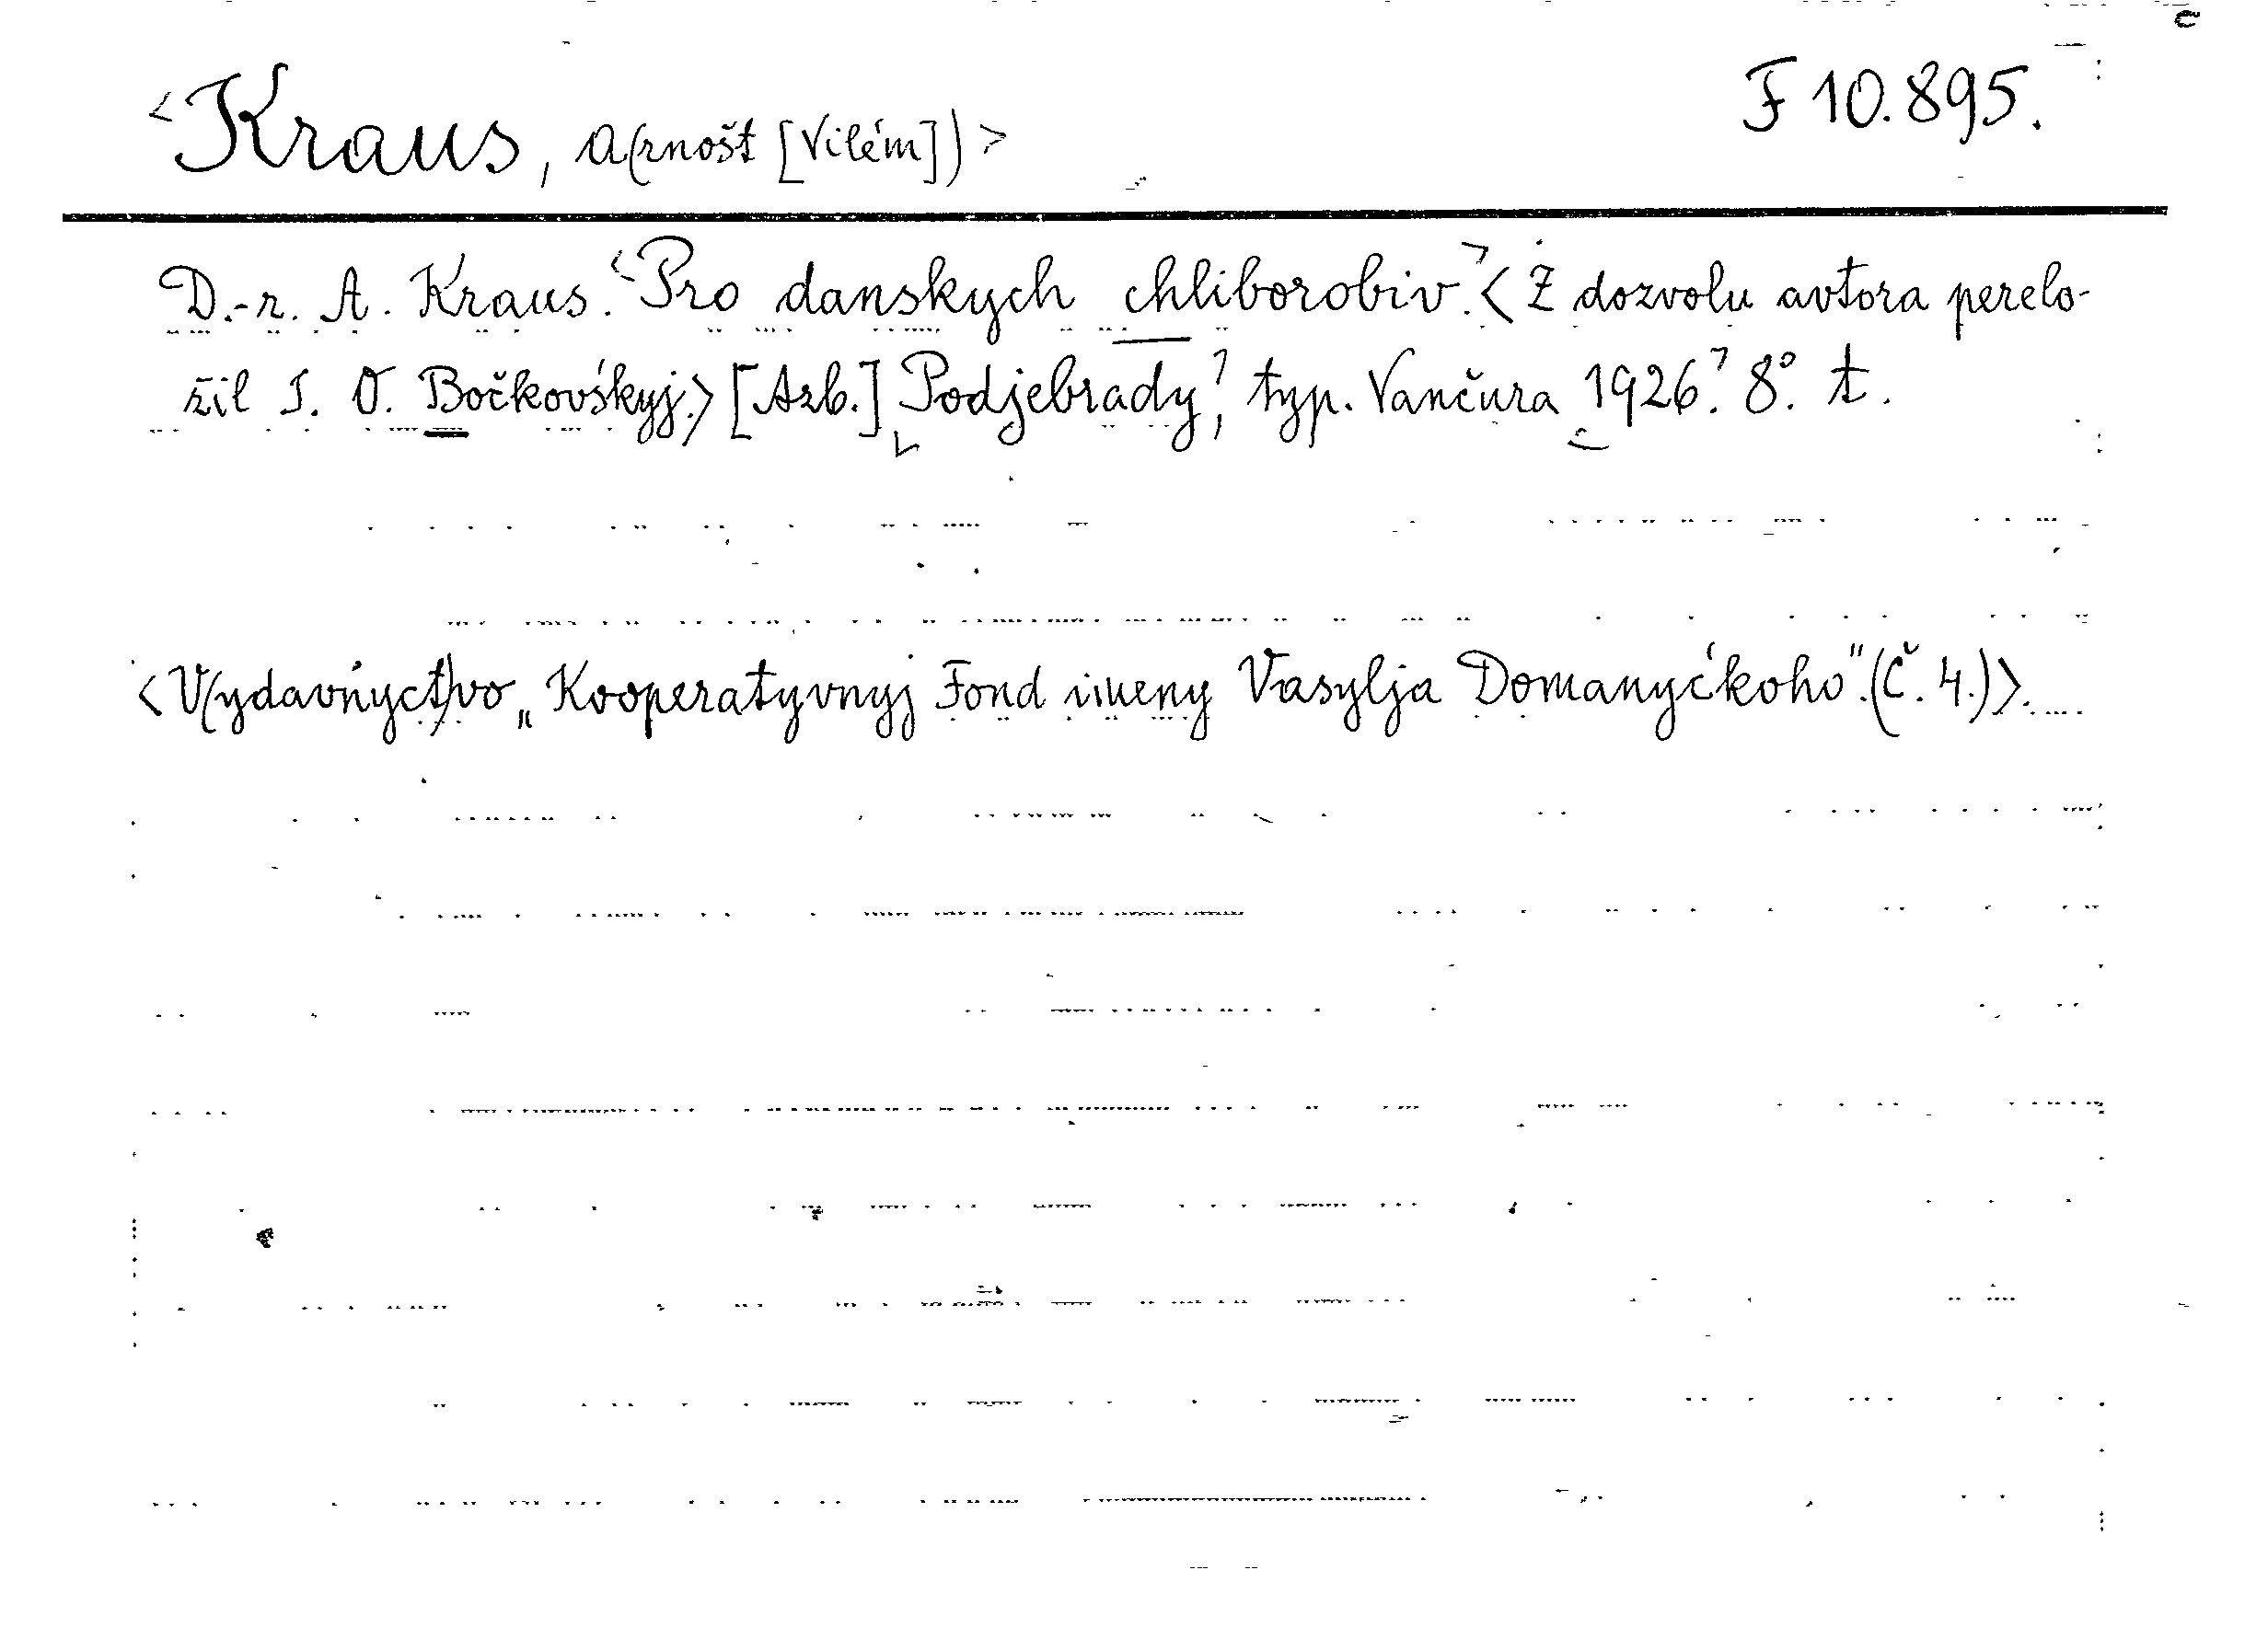 <Kraus, A(rnošt [Vilém])> F 10.895.
D.-r. A. Kraus. <Pro danskych chliborobiv.> <Z dozvolu avtora perelo-
žil I. O. Bočkovśkyj.> [Azb.] <Podjebrady>, typ. Vančura <1926>. 8°. t.
<V(ydavnyct)vo „Kooperatyvnyj Fond imeny Vasylja Domanyćkoho". (Č. 4.)>.